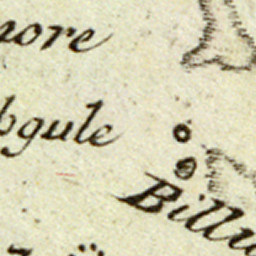 nore
bgule
Billu